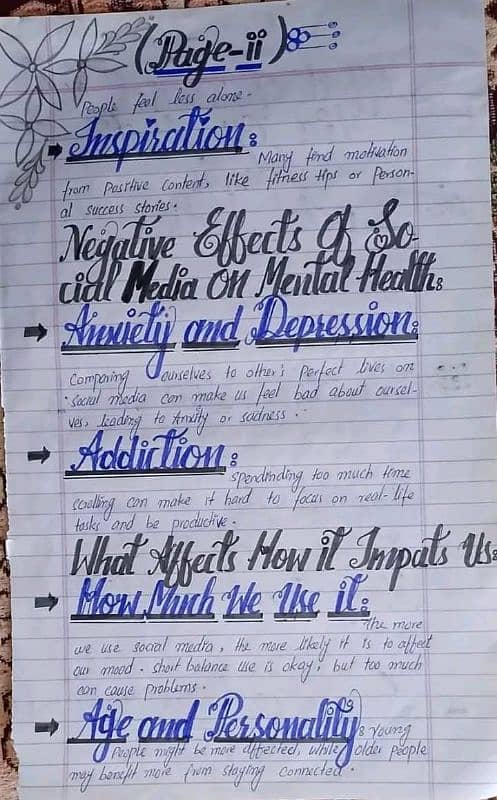 (Page-ii)
People feel less alone.
Inspiration:
Many find motivation
from positive content, like fitness tips or Person-
al success stories.
Negative Effects Of So-
cial Media On Mental Health:
Anxiety and Depression:
Comparing ourselves to other's Perfect lives on
social media can make us feel bad about oursel-
ves, leading to Anxity or sadness.
Addiction:
spendinding too much time
scrolling can make it hard to focus on real-life
tasks and be productive.
What Affects How it Impats Us:
How Much We Use it:
The more
we use social media, the more likely it is to affect
our mood. short balance use is okay, but too much
can cause problems.
Age and Personality: young
People might be more affected, while older people
may benefit more from staying connected.